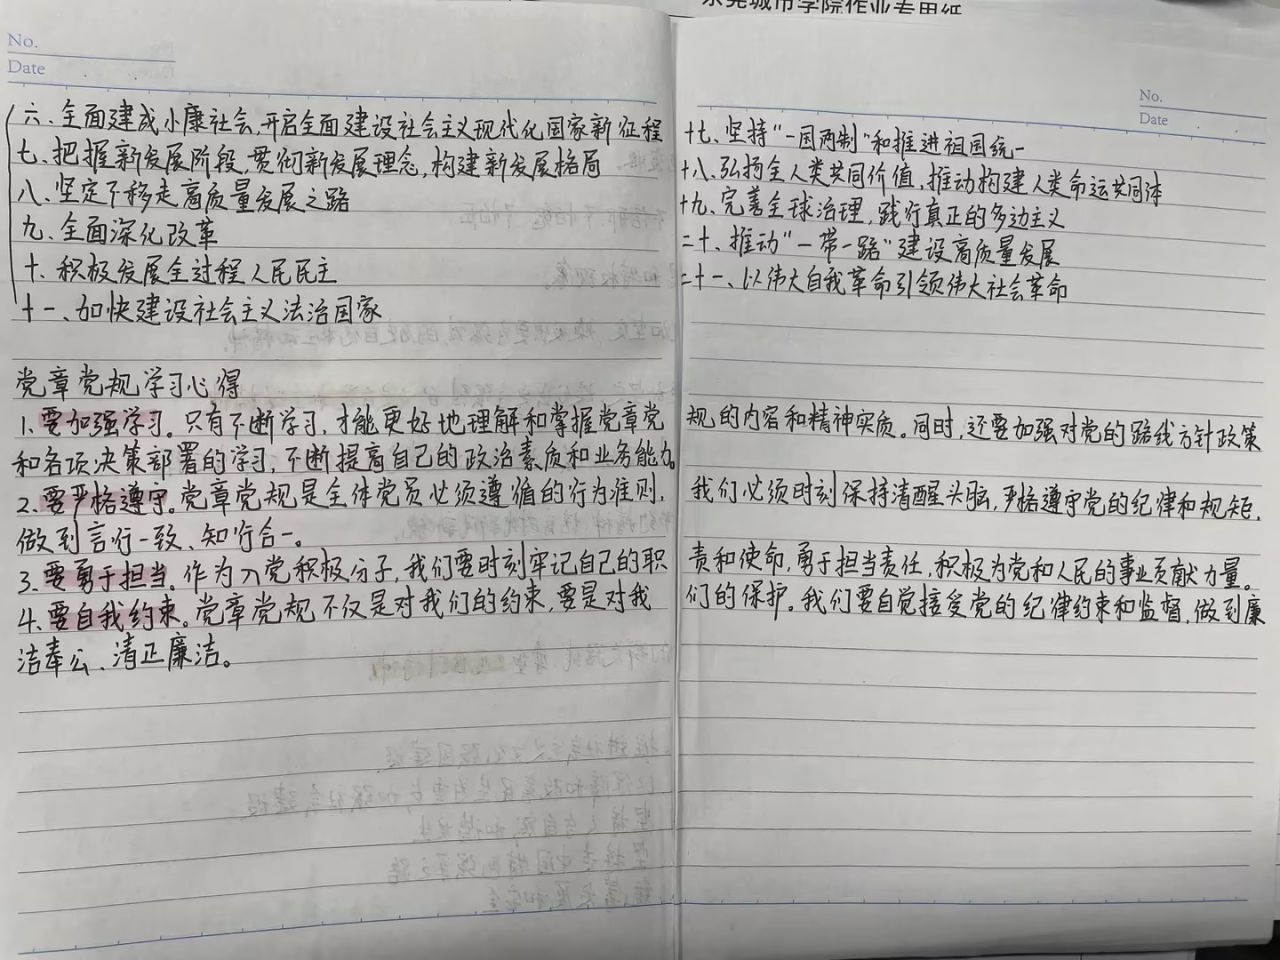 东莞城市学院作业专用纸
No.
Date
六、全面建成小康社会,开启全面建设社会主义现代化国家新征程
七、把握新发展阶段,贯彻新发展理念,构建新发展格局
八、坚定不移走高质量发展之路
九、全面深化改革
十、积极发展全过程人民民主
十一、加快建设社会主义法治国家
No.
Date
十七、坚持“一国两制”和推进祖国统一
十八、弘扬全人类共同价值,推动构建人类命运共同体
十九、完善全球治理,践行真正的多边主义
二十、推动“一带一路”建设高质量发展
二十一、以伟大自我革命引领伟大社会革命
党章党规学习心得
1、要加强学习。只有不断学习,才能更好地理解和掌握党章党规的内容和精神实质。同时,还要加强对党的路线方针政策
和各项决策部署的学习,不断提高自己的政治素质和业务能力。
2、要严格遵守。党章党规是全体党员必须遵循的行为准则,我们必须时刻保持清醒头脑,严格遵守党的纪律和规矩,
做到言行一致、知行合一。
3、要勇于担当。作为入党积极分子,我们要时刻牢记自己的职责和使命,勇于担当责任,积极为党和人民的事业贡献力量。
4、要自我约束。党章党规不仅是对我们的约束,要是对我们的保护。我们要自觉接受党的纪律约束和监督,做到廉
洁奉公、清正廉洁。